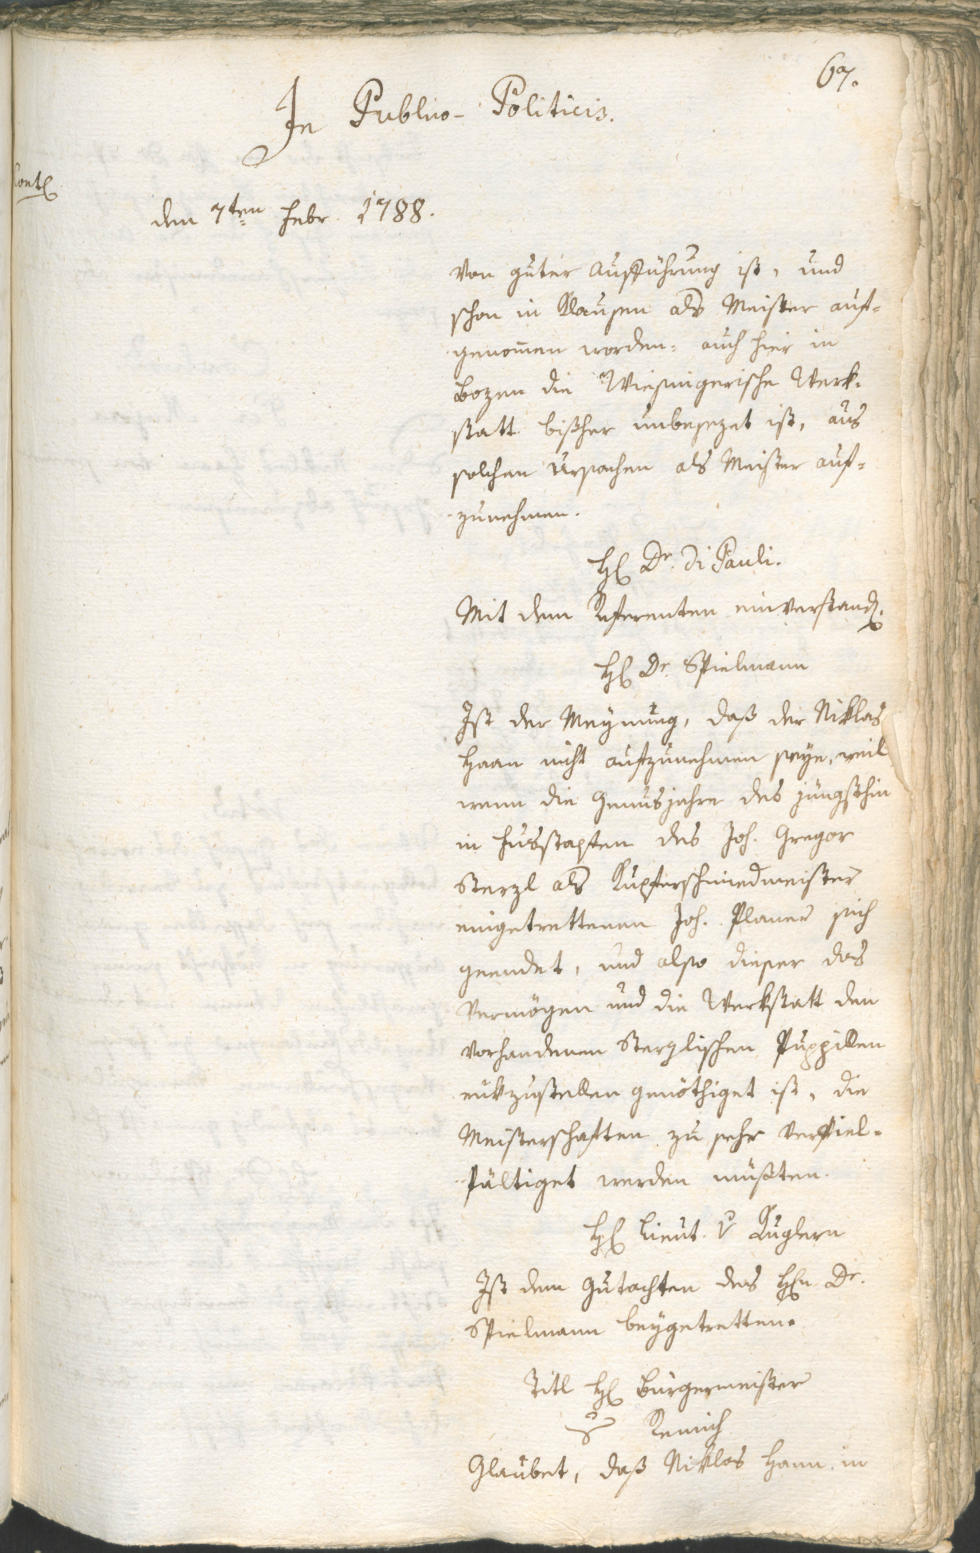 67.
In Publico-Politicis.
den 7ten Febr. 1788.
von guter Aufführung ist, und
schon in Klausen als Meister auf-
genommen worden: auch hier in
Bozen die Wiesingerische Werk-
statt bisher unbesezet ist, aus
solchen Ursachen als Meister auf-
zunehmen.
H. Dr. Di Pauli.
Mit dem Referenten einverstand.
H. Dr. Spielmann
Ist der Meynung, daß der Niklas
Haan nicht aufzunehmen seye, weil
wenn die Genusjahre des jüngsthin
in Fusstapfen des Joh. Gregor
Sterzl als Kupferschmiedmeister
eingetrettenen Joh. Planer sich
geendet, und also dieser das
Vermögen und die Werkstatt den
vorhandenen Sterzlischen Puppillen
rükzustellen genöthiget ist, die
Meisterschaften zu sehr verviel-
fältiget werden müßten.
H. Lieut. v. Kuglern
Ist dem Gutachten des Hn. Dr.
Spielmann beygetretten.
Titl H. Burgermeister
v. Remich
Glaubet, daß Niklas Hann in